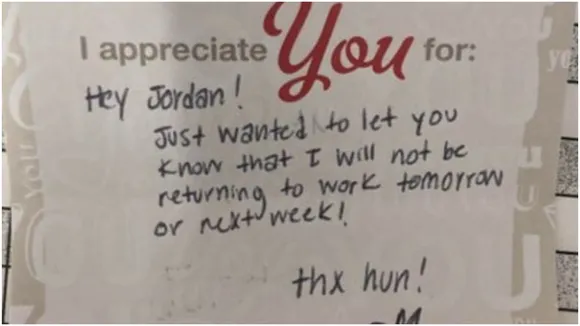 I appreciate You for:
Hey Jordan!
Just wanted to let you
know that I will not be
returning to work tomorrow
or next week!
thx hun!